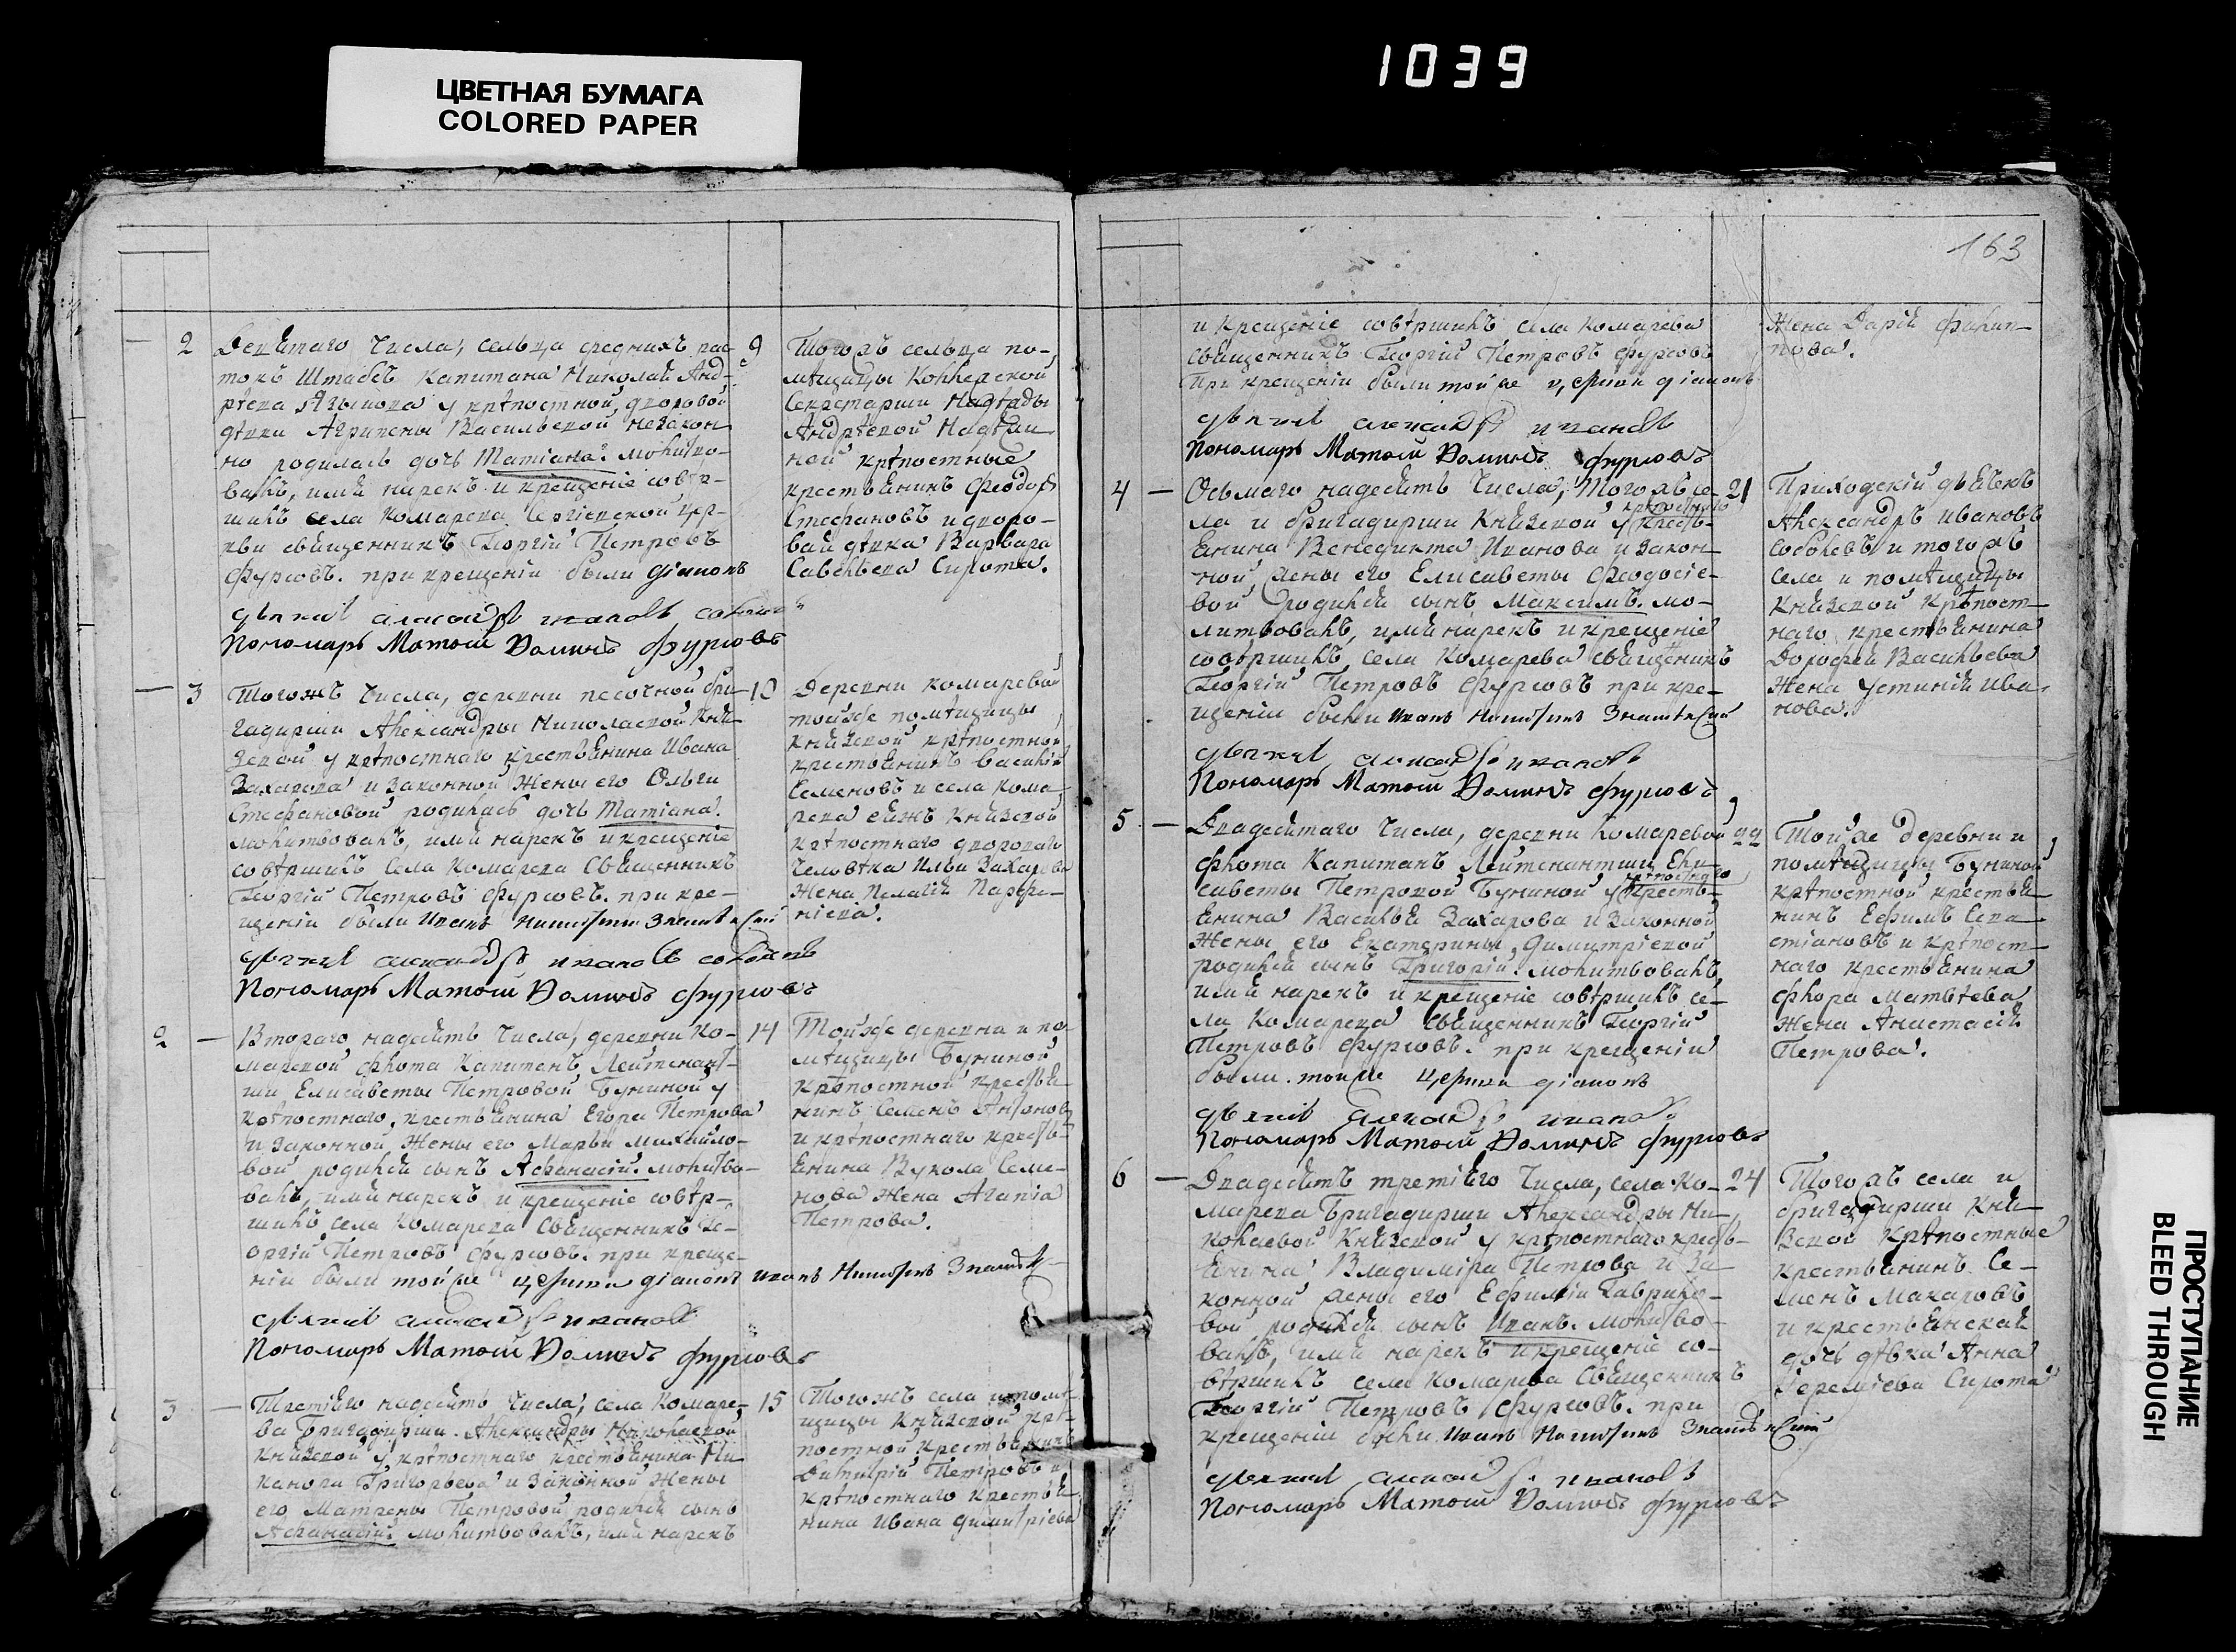 ЦВЕТНАЯ БУМАГА
COLORED PAPER
1039
2 Девѧтаго числа, сельца среднихъ рас- 9
токъ Штабсъ Капитана Николая Анд-
рѣева у крѣпостной дворовой
дѣвки Агрипены Васильевой незакон-
но родилась дочь Татіана. молитво-
валъ, имя нарекъ и крещеніе совѣр-
шилъ села Комарева Сергіевской цер-
кви свѧщенникъ Георгій Петровъ
Фурсовъ. при крещеніи были діаконъ
дьячекъ александръ ивановъ соболевъ
Пономарь Матѳей Доминъ Фурсовъ
Тогожъ сельца по-
мѣщицы Коллежской
Секретарши Надѣжды
Андрѣевой
крѣпостные
крестьянинъ Феодоръ
Стефановъ и дворо-
вая дѣвка Варвара
Савельева Сирота.
3 Тогожъ числа, деревни песочной бри- 10
гадирши Александры Николаевой Кня-
зевой у крѣпостнаго крестьянина Ивана
Захарова и законной Жены его Ольги
Стефановой родилась дочь Татіана.
молитвовалъ, имя нарекъ и крещеніе
совѣршилъ села Комарева Свѧщенникъ
Георгій Петровъ Фурсовъ. при кре-
щеніи были Иванъ Никитинъ
дьячекъ александръ ивановъ соболевъ
Пономарь Матѳей Доминъ Фурсовъ
Деревни Комаревой
тойже помѣщицы
Князевой крѣпостной
крестьянинъ Василій
Семеновъ и села Кома-
рева еяжъ Князевой
крѣпостнаго двороваго
человѣка Ильи Захарова
Жена Пелагія Парфе-
ніева.
2 Втораго надесѧть числа, деревни Ко- 14
маревой флота Капитанъ Лейтенант-
ши Елисаветы Петровой Буниной у
крѣпостнаго крестьянина Егора Петрова
и законной Жены его Марьи Михайло-
вой родился сынъ Афанасій. молитво-
валъ, имя нарекъ и крещеніе совѣр-
шилъ села Комарева Свѧщенникъ Ге-
оргій Петровъ Фурсовъ. при креще-
ніи были тойже церкви діаконъ иванъ Никитинъ
дьячекъ александръ ивановъ
Пономарь Матѳей Доминъ Фурсовъ
Тойже деревни и по-
мѣщицы Буниной
крѣпостной крестья-
нинъ Семенъ Антоновъ
и крѣпостнаго кресть-
янина Вукола Семе-
нова жена Агапіа
Петрова.
3 Третіяго надесѧть числа, села Комаре- 15
ва Бригадирши Александры Николаевой
Князевой у крѣпостнаго крестьянина Ни-
канора Григорьева и законной Жены
его Матрены Петровой родился сынъ
Афанасій. молитвовалъ, имя нарекъ
Тогожъ села и помѣ-
щицы Князевой крѣ-
постной крестьянинъ
Димитрій Петровъ и
крѣпостнаго крестья-
нина Ивана Димитріева
163
и крещеніе совѣршилъ села Комарева
свѧщенникъ Георгій Петровъ Фурсовъ
При крещеніи были тойже церкви діаконъ
дьячекъ александръ ивановъ
Пономарь Матѳей Доминъ Фурсовъ
Жена Дарія Филип-
пова.
4 Осьмаго надесѧть числа, Тогожъ се- 21
ла и бригадирши Князевой у крѣпостнаго кресть-
янина Венедикта Иванова и закон-
ной жены его Елисаветы Феодосіе-
вой родился сынъ Максимъ. мо-
литвовалъ, имя нарекъ и крещеніе
совѣршилъ села Комарева свѧщенникъ
Георгій Петровъ Фурсовъ при кре-
щеніи были Иванъ Никитинъ
дьячекъ александръ ивановъ
Пономарь Матѳей Доминъ Фурсовъ
Приходскій дьячекъ
Александръ Ивановъ
Соболевъ и тогожъ
села и помѣщицы
Князевой Крѣпост-
наго крестьянина
Дорофея Васильева
Жена Устинія Ива-
нова.
5 Двадесѧтаго числа, деревни Комаревой 22
флота Капитанъ Лейтенантши Ели-
саветы Петровой Буниной у крѣпостнаго кресть-
янина Василья Захарова и законной
Жены его Екатерины Димитріевой
родился сынъ Григорій. молитвовалъ,
имя нарекъ и крещеніе совѣршилъ се-
ла Комарева Свѧщенникъ Георгій
Петровъ Фурсовъ. при крещеніи
были тойже церкви діаконъ
дьячекъ александръ ивановъ
Пономарь Матѳей Доминъ Фурсовъ
Тойже деревни и
помѣщицы Буниной
крѣпостной крестья-
нинъ Ефимъ Сева-
стіановъ и крѣпост-
наго крестьянина
Флора Матвѣева
Жена Анастасія
Петрова.
6 Двадесѧть третіяго числа, села Ко- 24
марева Бригадирши Александры Ни-
колаевой Князевой у крѣпостнаго кресть-
янина Владиміра Петрова и За-
конной жены его Ефиміи Гаврило-
вой родился сынъ Иванъ. молитво-
валъ, имя нарекъ и крещеніе со-
вѣршилъ села Комарева Свѧщенникъ
Георгій Петровъ Фурсовъ. при
крещеніи были Иванъ Никитинъ
дьячекъ александръ ивановъ
Пономарь Матѳей Доминъ Фурсовъ
Тогожъ села и
бригадирши Кня-
зевой Крѣпостные
крестьянинъ Се-
менъ Макаровъ
и крестьянская
дочь дѣвка Анна
Сирота
ПРОСТУПАНИЕ
BLEED THROUGH